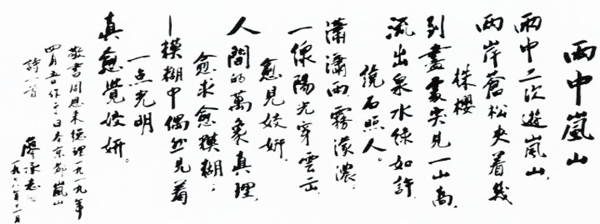 雨中嵐山
雨中二次遊嵐山,
兩岸蒼松夾着幾
株櫻
到盡處突見一山高,
流出泉水綠如許,
繞石照人。
瀟瀟雨霧濛濃,
一線陽光穿雲出,
愈見姣妍。
人間的萬象真理,
愈求愈模糊;
—模糊中偶然見着
一点光明
真愈覺姣妍。
敬書周恩来總理一九一九年
四月五日作于日本京都嵐山
詩一首
廖承志